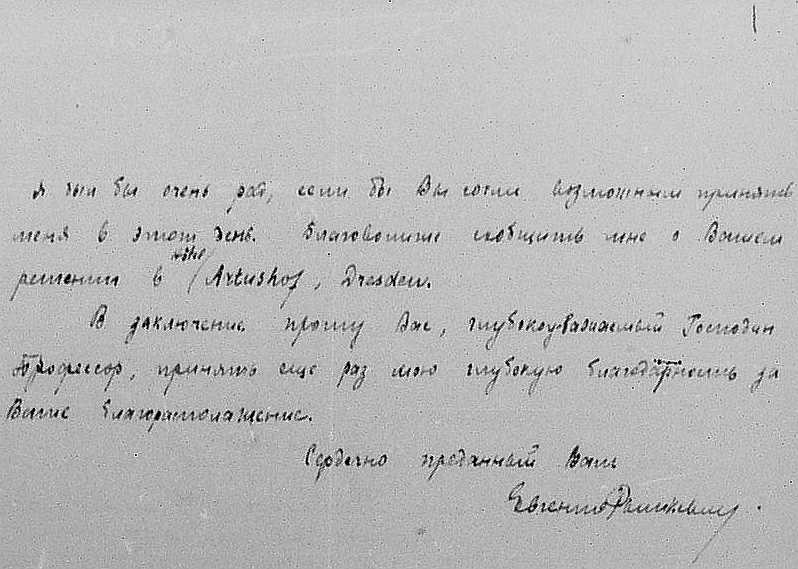 Я был бы очень рад, если бы Вы сочли возможным принять
меня в этот день. Благоволите сообщить мне о Вашем
решении в Artushof, Dresden.
В заключение прошу Вас, глубокоуважаемый Господин
Профессор, принять еще раз мою глубокую благодарность за
Ваше благорасположение.
Сердечно преданный Вам
Евгений